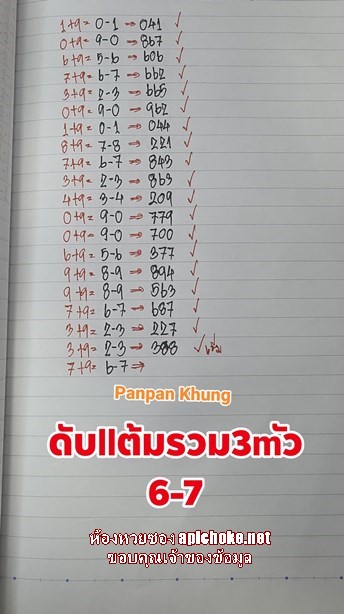 1+9= 0-1 ⇒ 041 ✓
0+9= 9-0 ⇒ 867 ✓
6+9= 5-6 ⇒ 606 ✓
7+9= 6-7 ⇒ 662 ✓
3+9= 2-3 ⇒ 665 ✓
0+9= 9-0 ⇒ 962 ✓
1+9= 0-1 ⇒ 044 ✓
8+9= 7-8 ⇒ 221 ✓
7+9= 6-7 ⇒ 843 ✓
3+9= 2-3 ⇒ 863 ✓
4+9= 3-4 ⇒ 209 ✓
0+9= 9-0 ⇒ 779 ✓
0+9= 9-0 ⇒ 700 ✓
6+9= 5-6 ⇒ 377 ✓
9+9= 8-9 ⇒ 894 ✓
9+9= 8-9 ⇒ 563 ✓
7+9= 6-7 ⇒ 687 ✓
3+9= 2-3 ⇒ 227 ✓
3+9= 2-3 ⇒ 388 ✓
7+9= 6-7 ⇒
Panpan Khung
ดับแต้มรวม3ตัว
6-7
ห้องหวยซอง apichoke.net
ขอบคุณเจ้าของข้อมูล